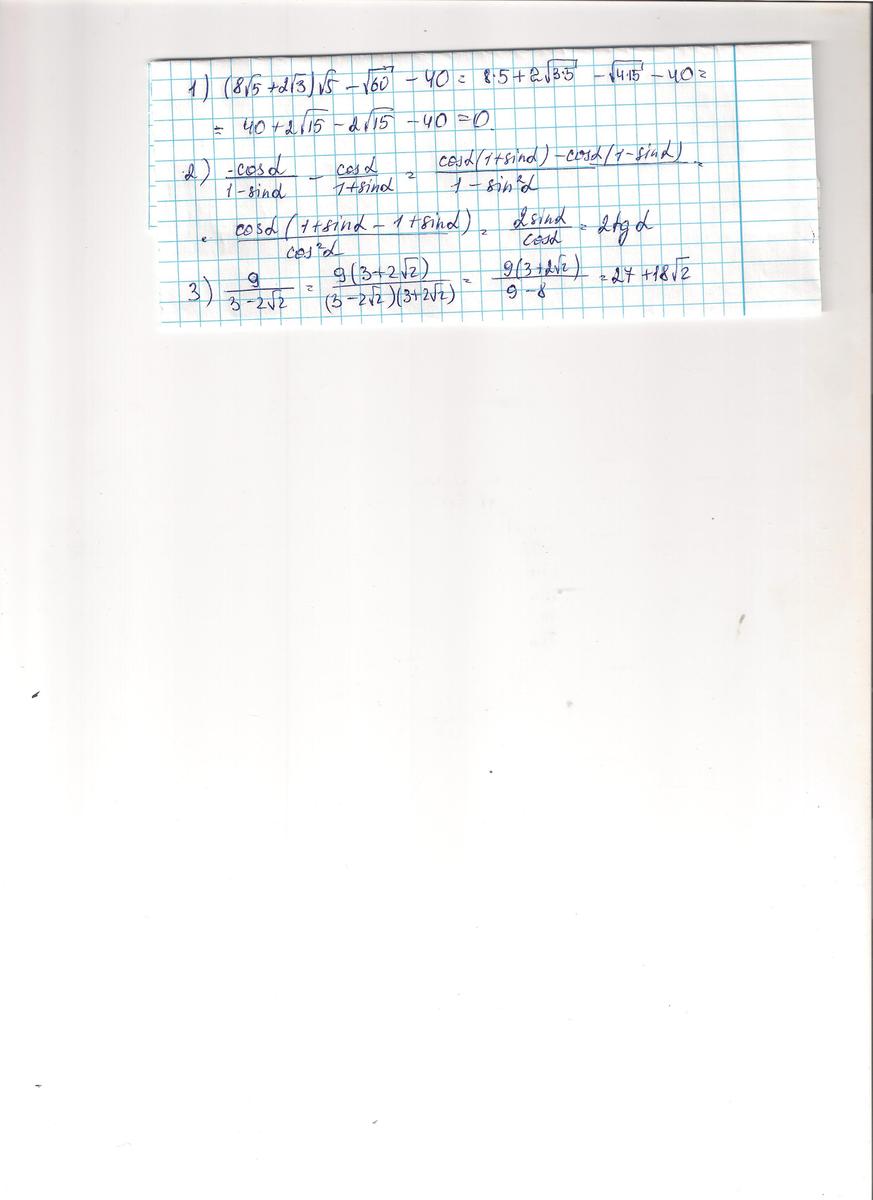 1) (8√5 + 2√3)√5 − √60 − 40 = 8·5 + 2√3·5 − √4·15 − 40 =
= 40 + 2√15 − 2√15 − 40 = 0.
2) -cosα/1−sinα − cosα/1+sinα = cosα(1+sinα) − cosα(1−sinα)/1 − sin²α =
= cosα(1+sinα − 1+sinα)/cos²α = 2sinα/cosα = 2tgα
3) 9/3−2√2 = 9(3+2√2)/(3−2√2)(3+2√2) = 9(3+2√2)/9−8 = 27+18√2